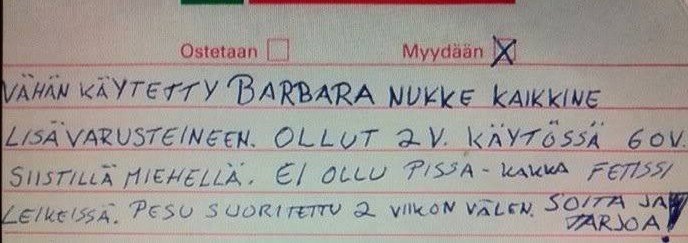 Ostetaan Myydään X
VÄHÄN KÄYTETTY BARBARA NUKKE KAIKKINE
LISÄVARUSTEINEEN. OLLUT 2V. KÄYTÖSSÄ 60V.
SIISTILLÄ MIEHELLÄ. EI OLLU PISSA-KAKKA FETISSI
LEIKEISSÄ. PESU SUORITETTU 2 VIIKON VÄLEN. SOITA JA
TARJOA!